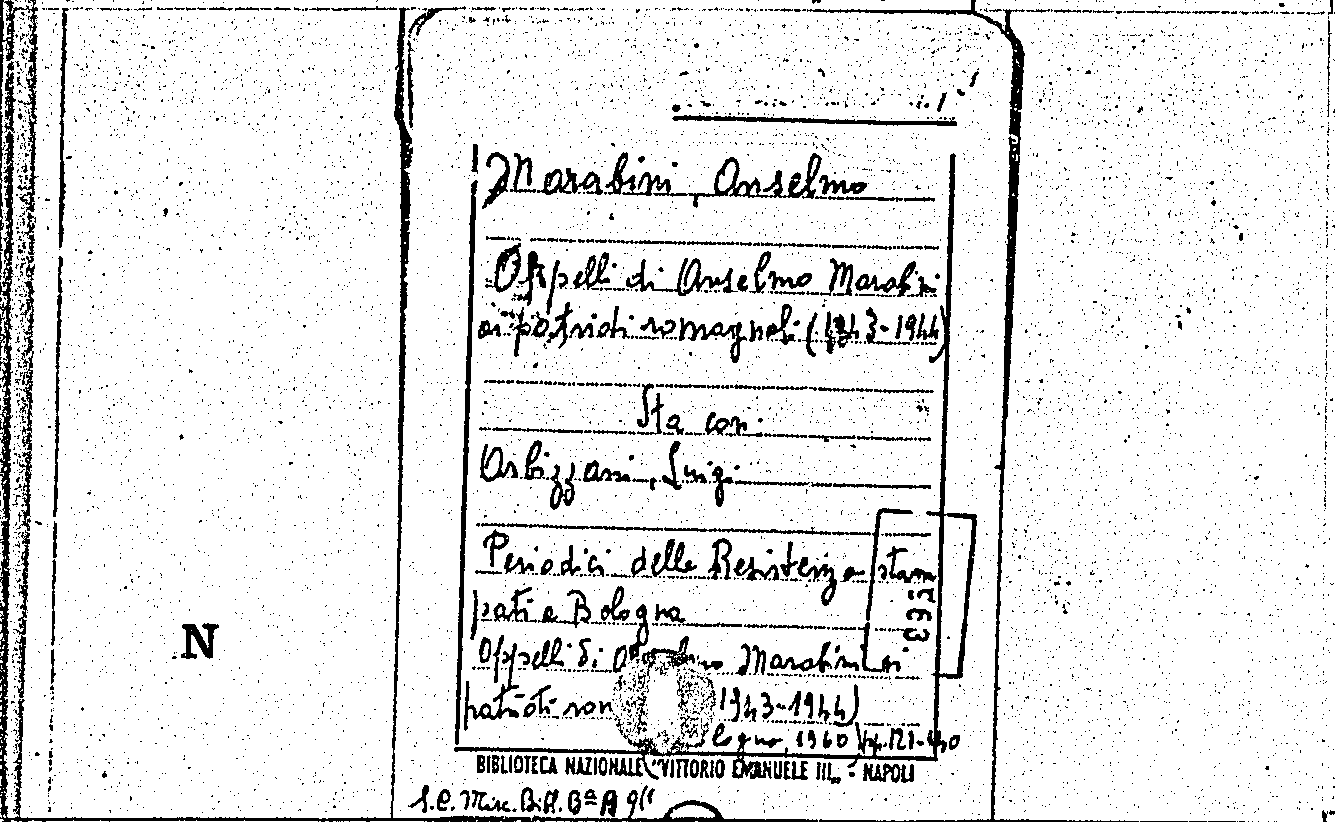 Marabini, Anselmo
Appelli di Anselmo Marabini
ai patrioti romagnoli (1943-1944)
Sta con:
Arbizzani, Luigi
Periodici della Resistenza stam
pati a Bologna
Appelli di Anselmo Marabini ai
patrioti rom 1943-1944)
logna, 1960) pp. 121-130
BIBLIOTECA NAZIONALE "VITTORIO EMANUELE III" - NAPOLI
S.C. Misc. Bibl. Bª A 9
N